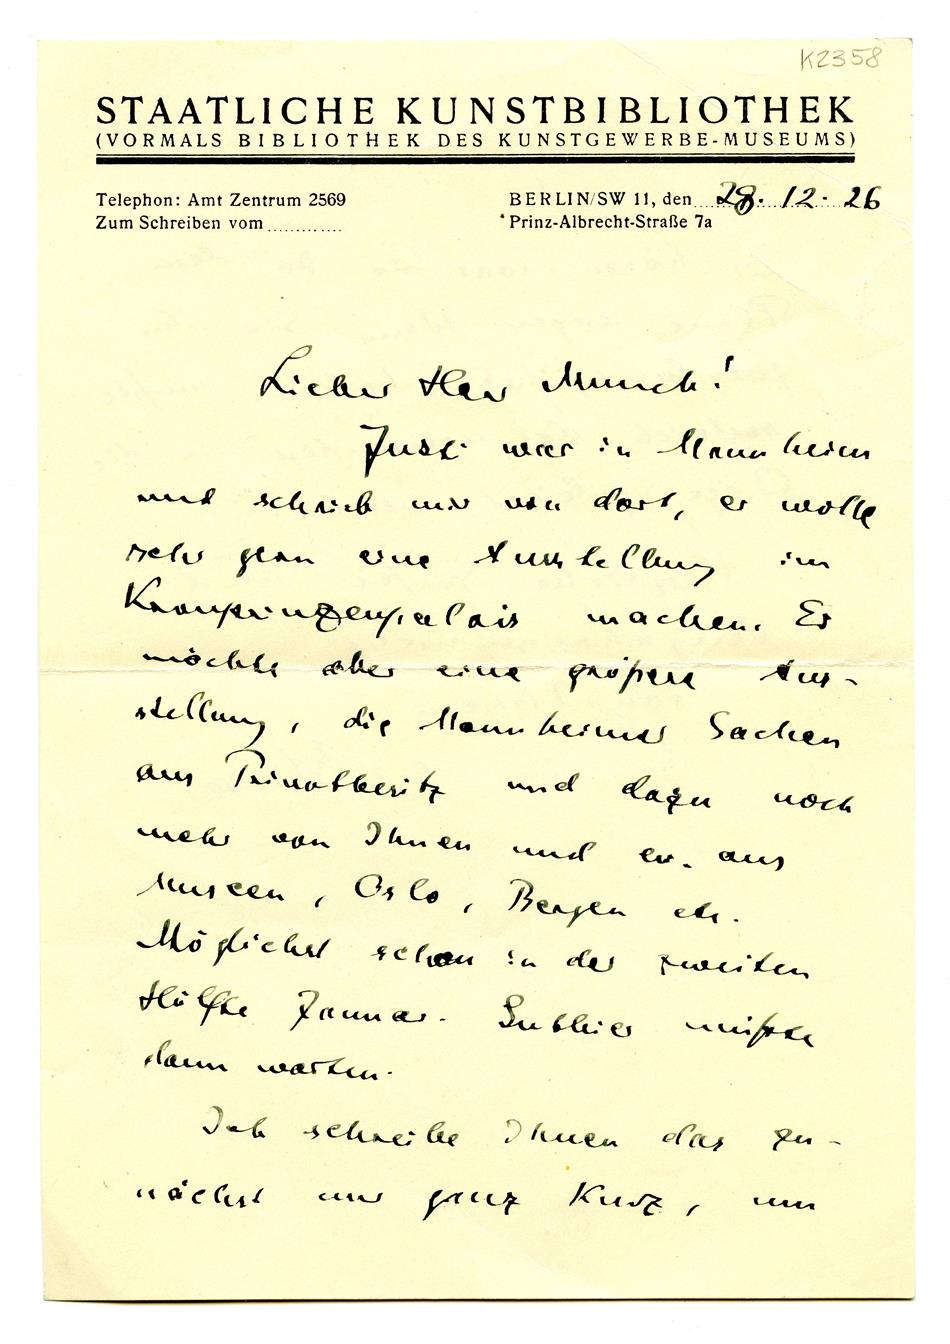 K2358
STAATLICHE KUNSTBIBLIOTHEK
(VORMALS BIBLIOTHEK DES KUNSTGEWERBE-MUSEUMS)
Telephon: Amt Zentrum 2569
Zum Schreiben vom ............
BERLIN/SW 11, den 28. 12. 26
Prinz-Albrecht-Straße 7a
Lieber Herr Munch!
Justi war in Mannheim
und schrieb mir von dort, er wolle
sehr gern eine Ausstellung im
Kronprinzenpalais machen. Er
möchte aber eine größere Aus-
stellung, die Mannheimer Sachen
aus Privatbesitz und dazu noch
mehr von Ihnen und ev. aus
Museen, Oslo, Bergen etc.
Möglichst schon in der zweiten
Hälfte Januar. Gutbier müsste
dann warten.
Ich schreibe Ihnen das zu-
nächst nur ganz kurz, um